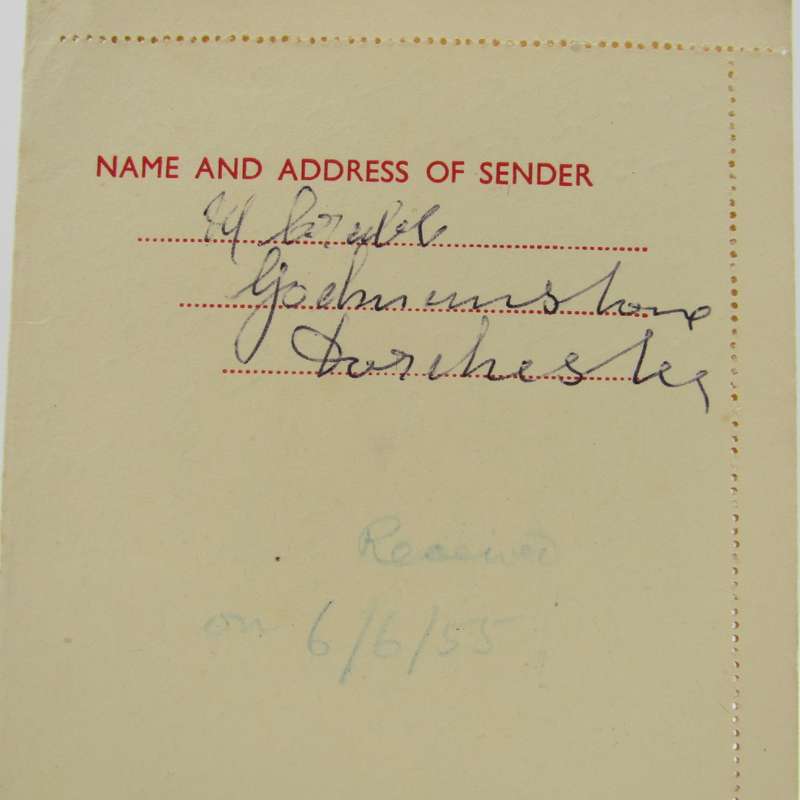 NAME AND ADDRESS OF SENDER
M
Godmanstone
Dorchester
Received
on 6/6/55